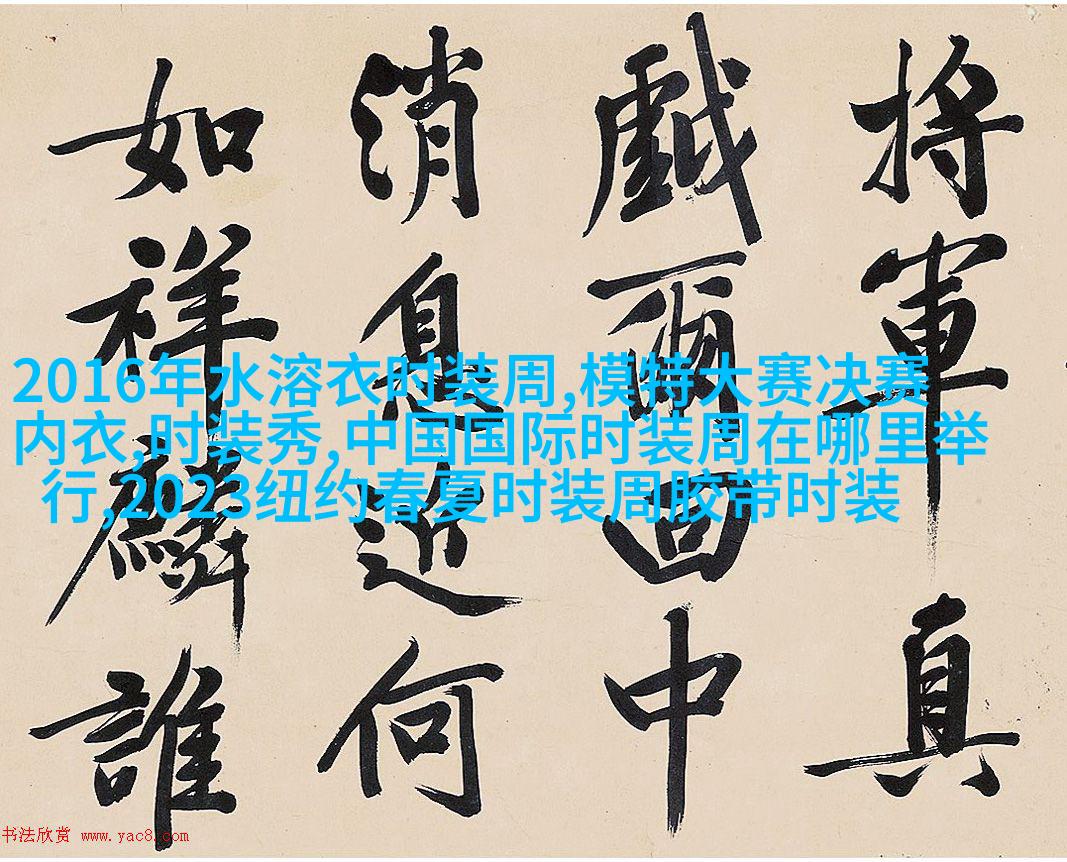 將軍真
戲爾回中
消息近何
如祥麟誰
2016年水溶衣时装周,模特大赛决赛
内衣,时装秀,中国国际时装周在哪里举
行,2023纽约春夏时装周胶带时装
书法欣赏 www.yac8.com